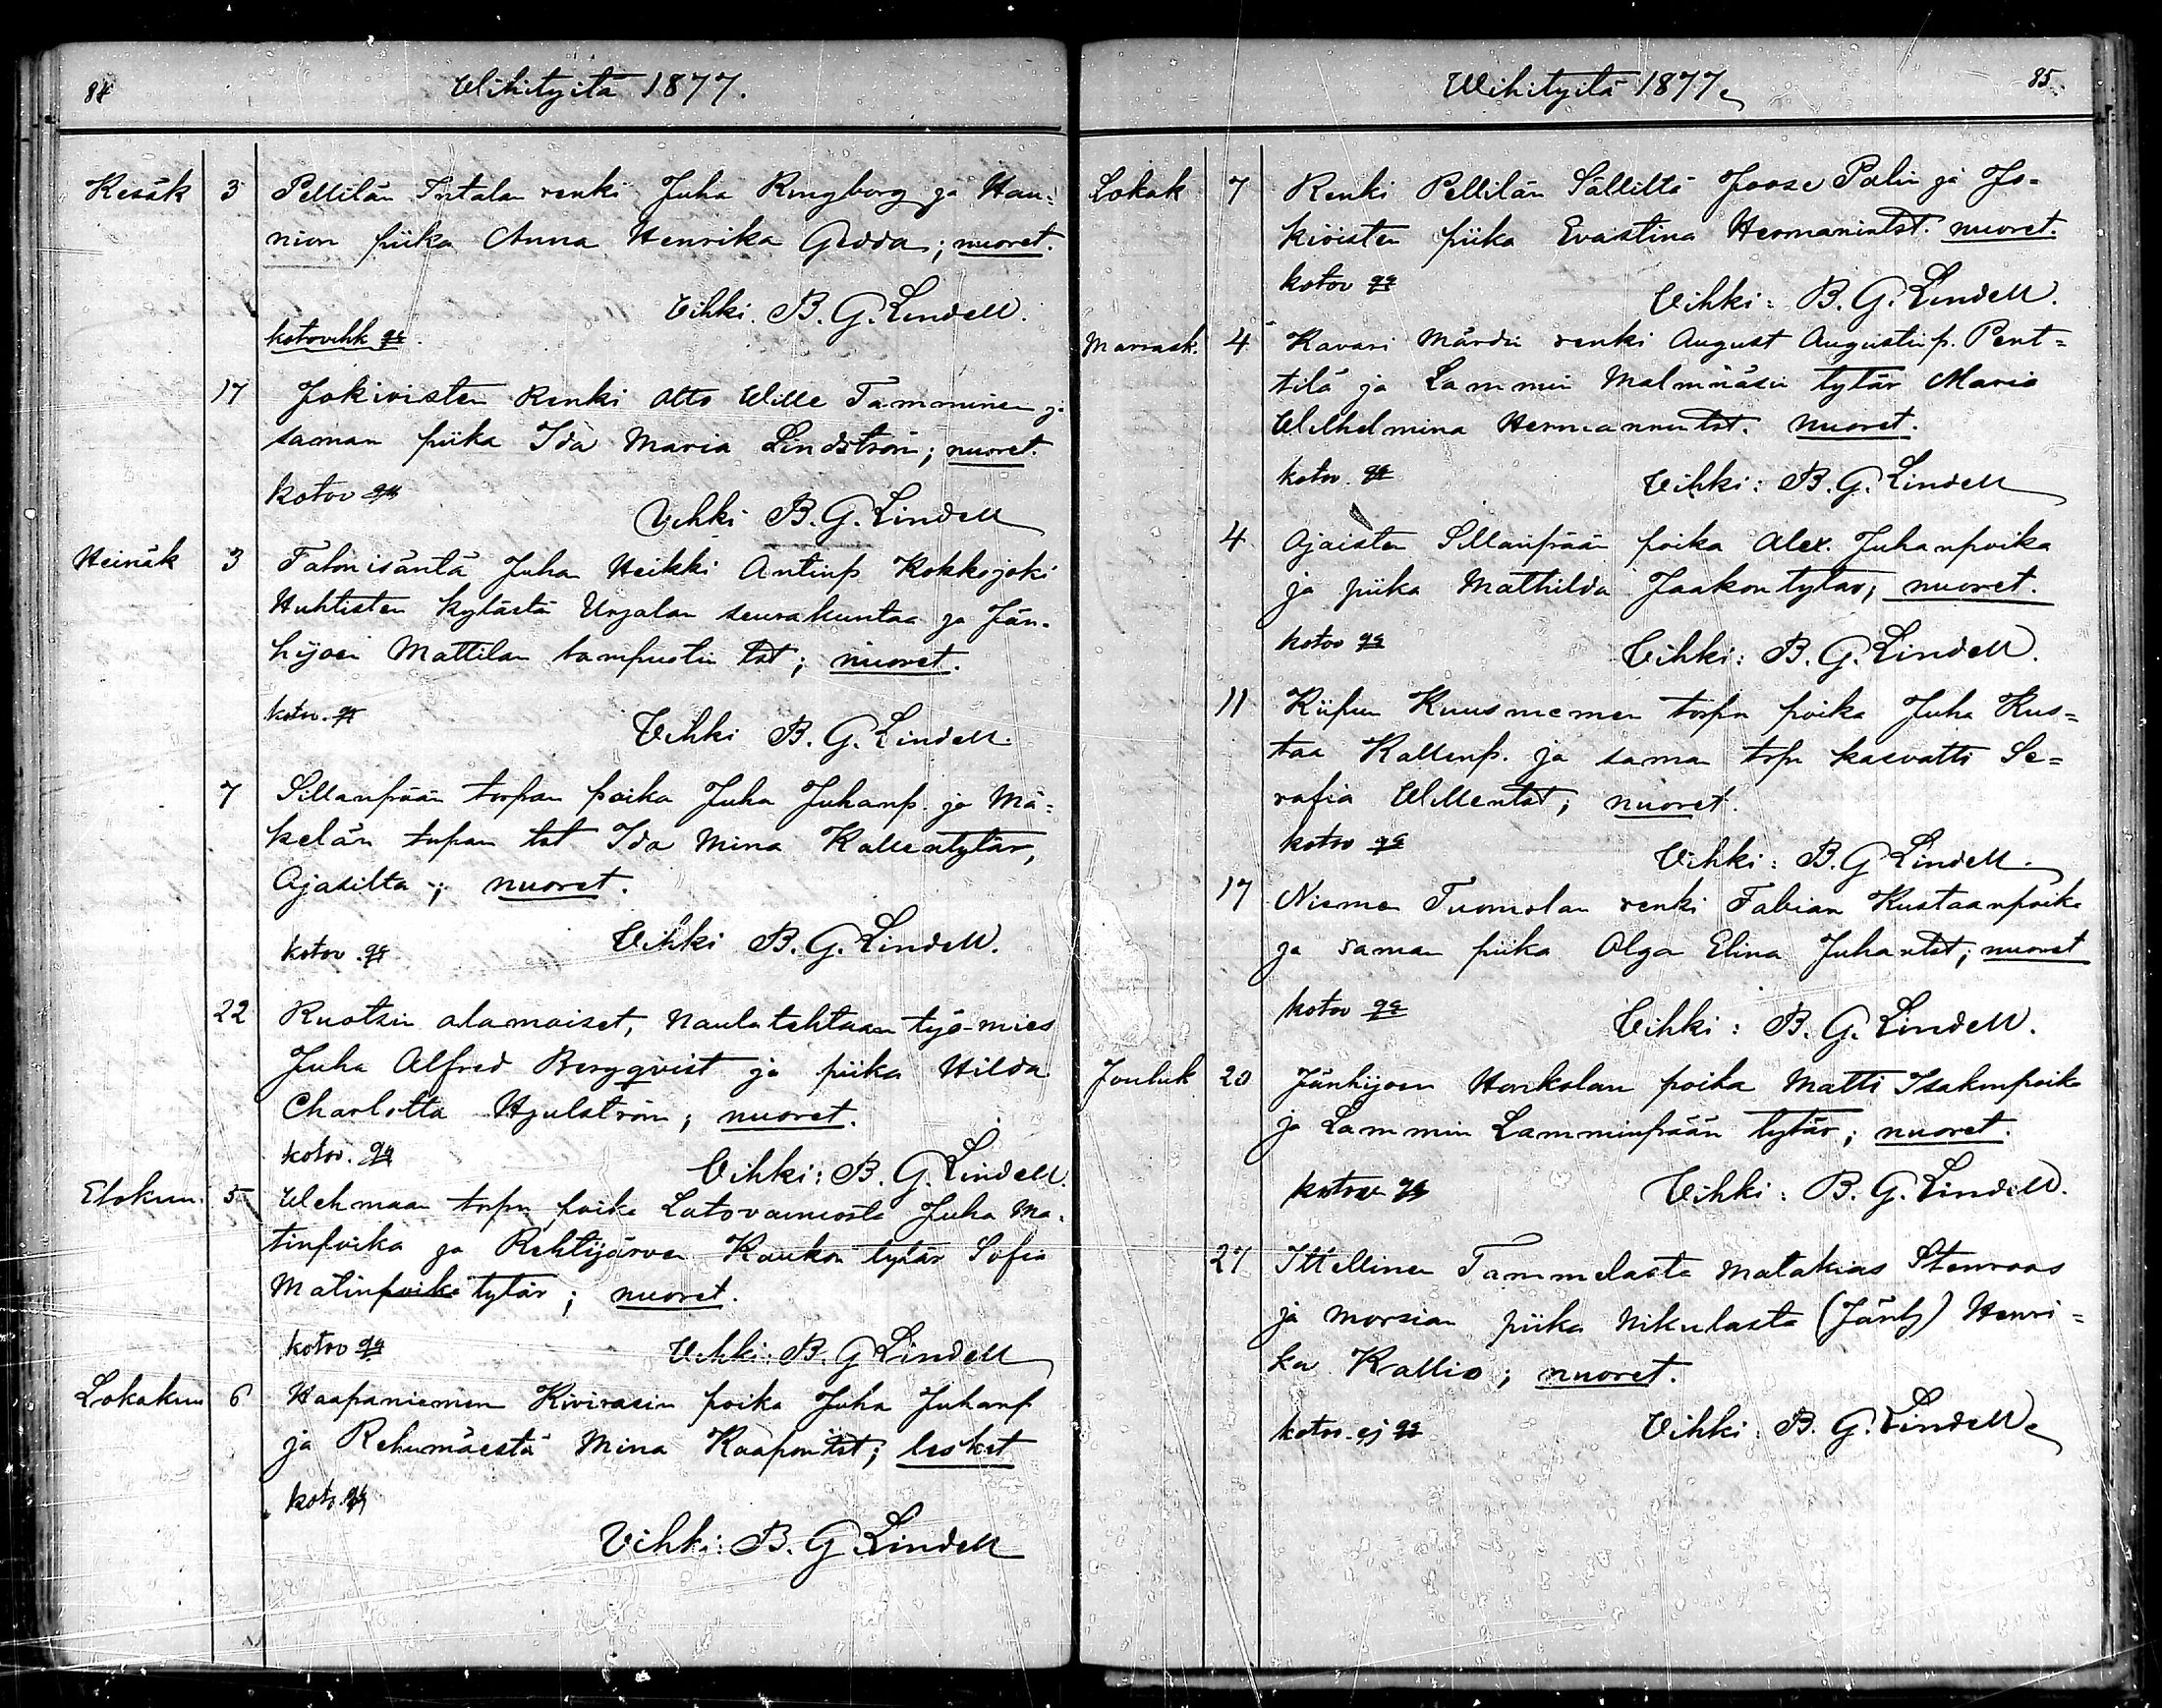 84
Wihityitä 1877.
Kesäk 3 Pellilän Intalan renki Juha Ringborg ja Hau-
nion piika Anna Henrika Gedda; nuoret.
Vihki. B. G. Lindell.
kotovihk
17 Jokioisten Renki Otto Wille Tamminen ja
saman piika Ida Maria Lindström; nuoret.
kotov
Vihki B. G. Lindell
Heinäk 3 Talonisäntä Juha Heikki Antinp Kokkojoki
Huhtisten kylästä Urjalan seurakuntaa ja Jän-
hijoen Mattilan tampuotin tst; nuoret.
kotov.
Vihki B. G. Lindell.
7 Sillanpään torpan poika Juha Juhanp. ja Mä-
kelän tupan tst Ida Mina Kallentytär,
Ojasilta; nuoret.
kotov.
Vihki B. G. Lindell.
22 Ruotsin alamaiset, Naulatehtaan työ-mies
Juha Alfred Bergqvist ja piika Hilda
Charlotta Hjulström; nuoret.
kotov.
Vihki: B. G. Lindell.
Elokuu. 5 Wehmaan torpn poika Latovainiosta Juha Ma-
tinpoika ja Rehtijärven Kaukon tytär Sofia
Matinpoika tytär; nuoret.
kotov
Vihki: B. G. Lindell
Lokakuu 6 Haapaniemen Kivirasin poika Juha Juhanp
ja Rehumäestä Mina Kaapontst; lesket
kotv.
Vihki: B. G. Lindell
Wihityitä 1877.
85.
Lokak 7 Renki Pellilän Sälliltä Joose Palin ja Jo-
kioisten piika Evastina Hermanintst. nuoret.
kotov
Vihki: B. G. Lindell.
Marrask. 4 Kavari Märdin renki August Augustinp. Pent-
tilä ja Lammin Malmnäsin tytär Maria
Wilhelmina Hermannintst. nuoret.
kotov.
Vihki: B. G. Lindell
4 Ojaisten Sillanpään poika Alex. Juhanpoika
ja piika Mathilda Jaakontytär; nuoret.
kotov
Vihki: B. G. Lindell.
11 Kiipun Kuusniemen torpn poika Juha Kus-
taa Kallenp. ja saman torpn kasvatti Se-
rafia Willentst; nuoret.
kotov
Vihki: B. G. Lindell.
17 Niemen Tuomolan renki Fabian Kustaanpoika
ja saman piika Olga Elina Juhantst; nuoret
kotov
Vihki: B. G. Lindell.
Jouluk 20 Jänhijoen Honkolan poika Matti Isakinpoika
ja Lammin Lamminpään tytär; nuoret.
kotov
Vihki: B. G. Lindell.
27 Ittellinen Tammelasta Malakias Stenroos
ja morsian piika Nikulasta (Jänh) Henri-
ka Kallio; nuoret.
kotov. ej
Vihki: B. G. Lindell.